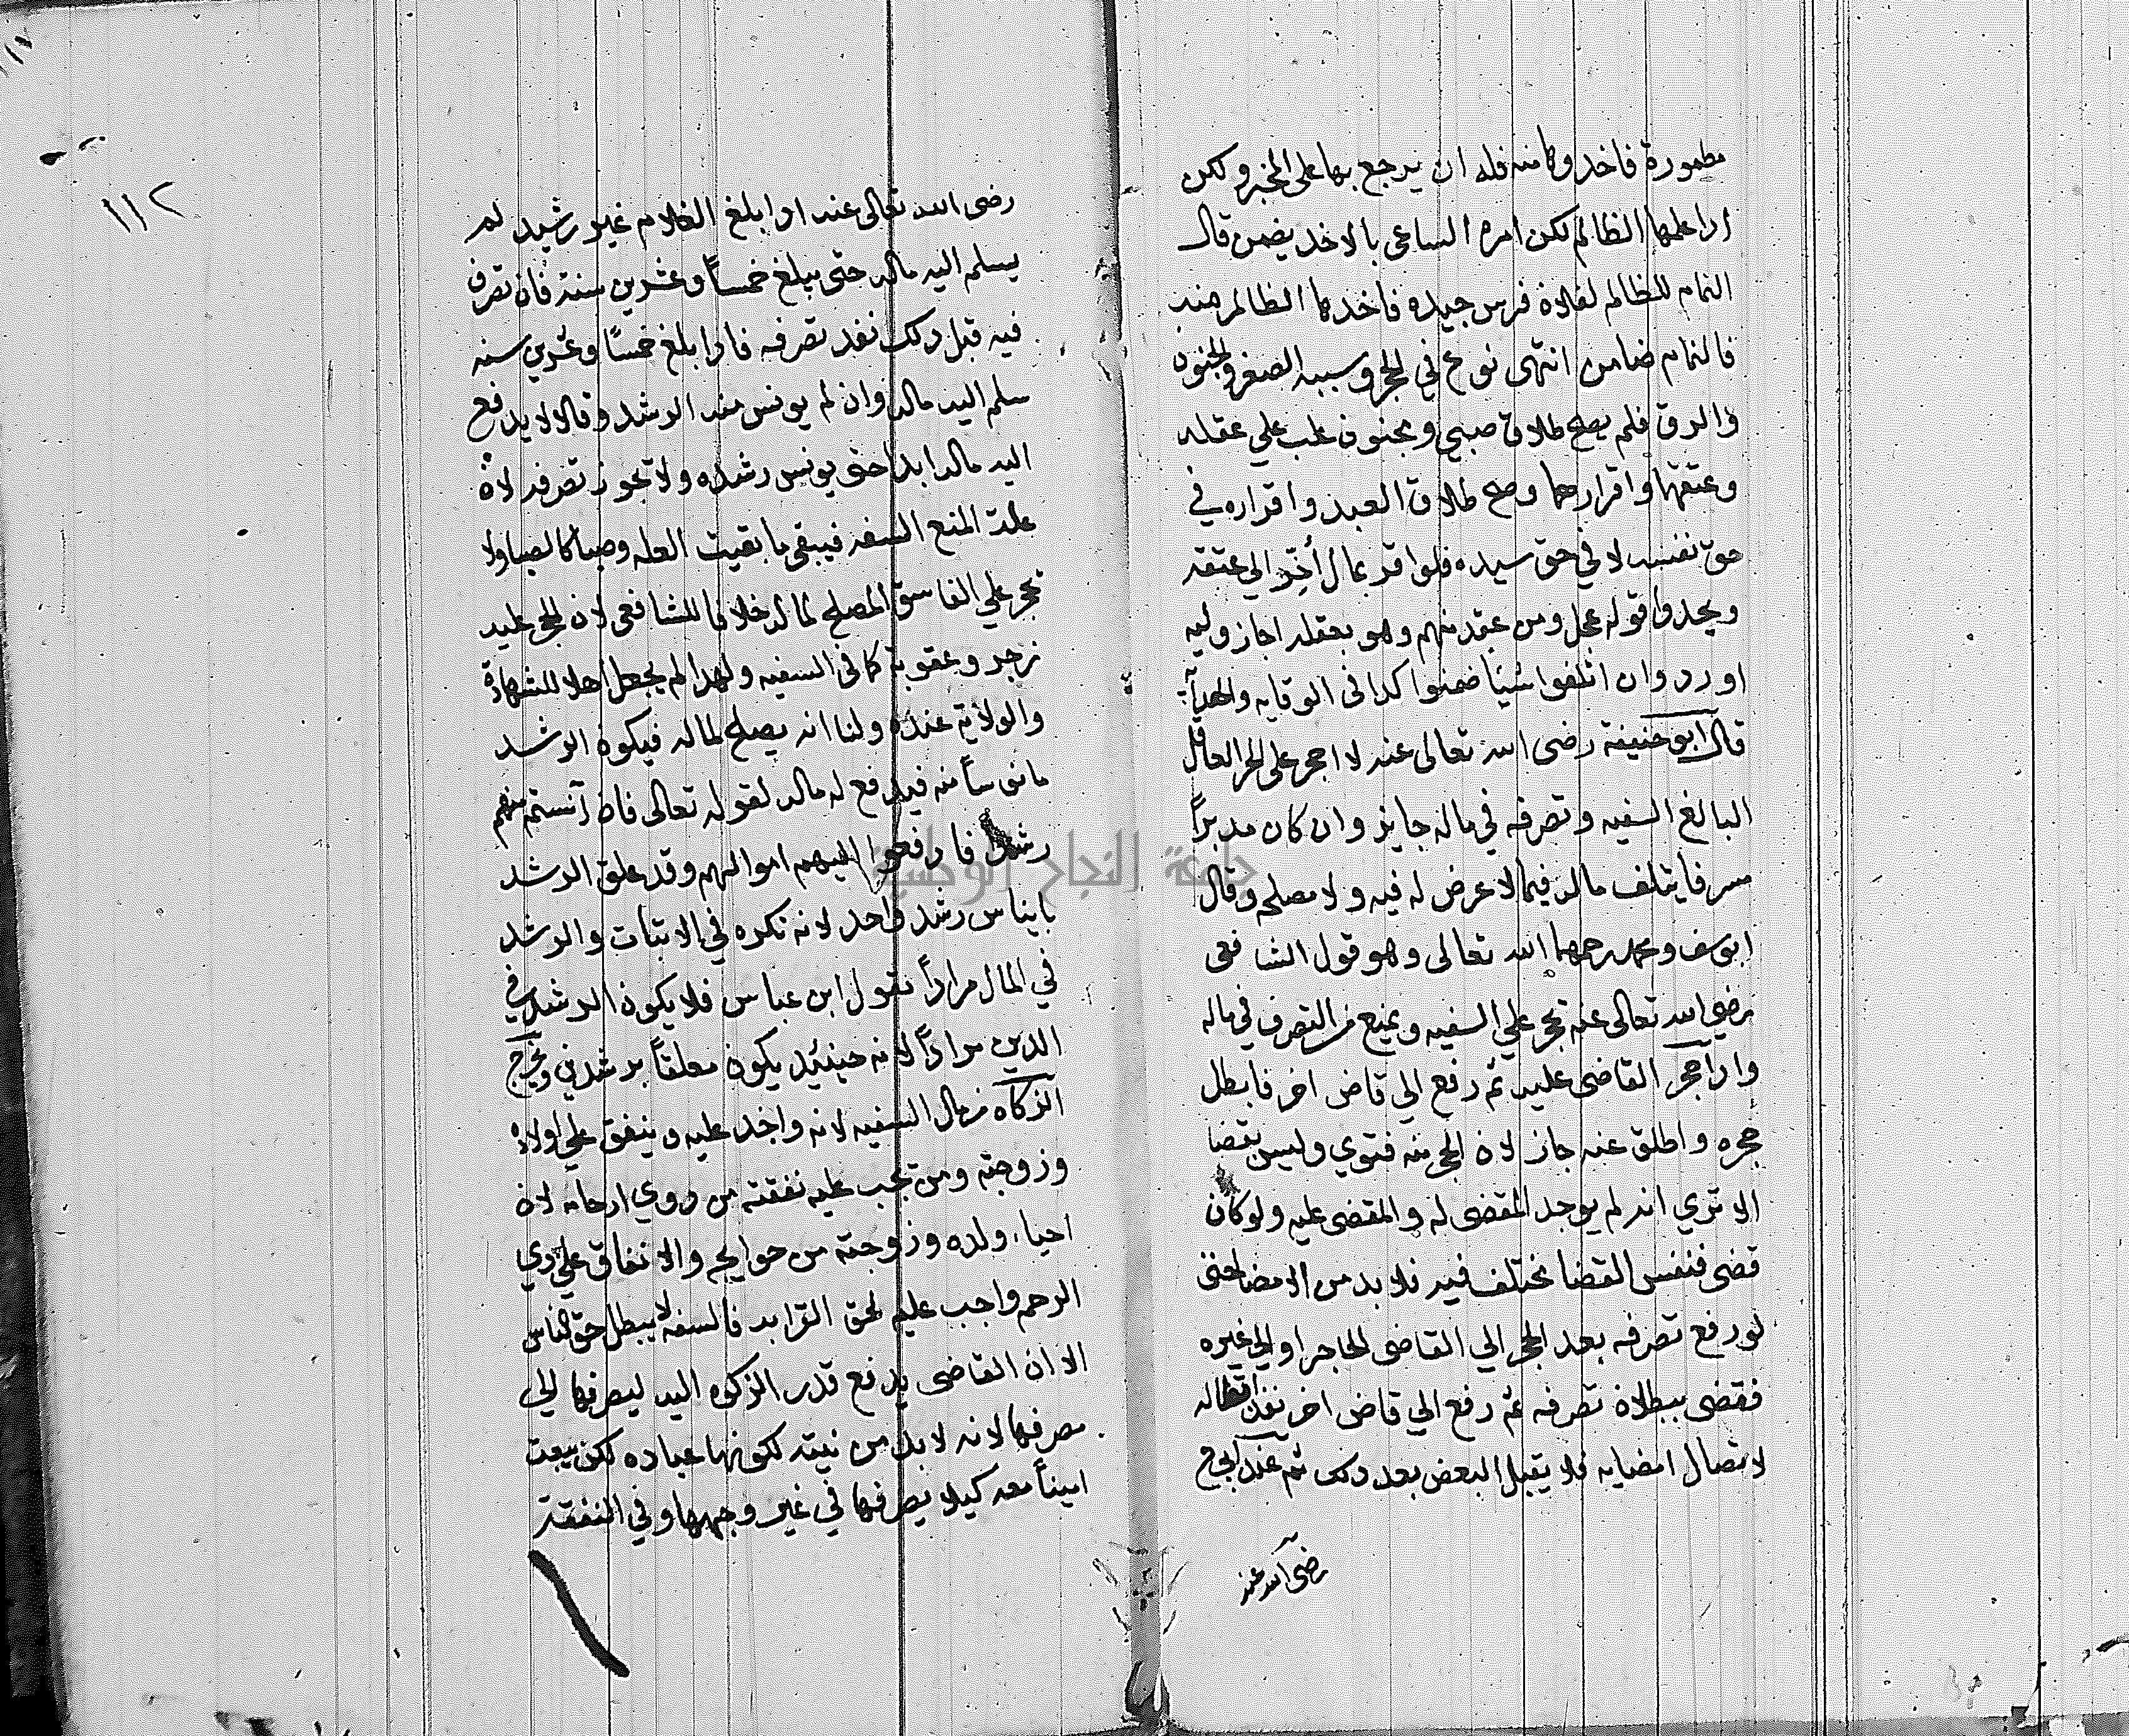 مطمورة فاخدوها منه فله ان يرجع بها على المخبر ولكن
ادا علمها الظالم لكن امره الساعى بالاخد يضمن قال
النمام للظالم لفلان فرس جيده فاخدها الظالم منه
فالنمام ضامن انتهى نوع في الحجر وسببه الصغر والجنون
والرق فلم يصح طلاق صبي ومجنون غلب علي عقله
وعتقهما واقرارهما وصح طلاق العبد واقراره في
حق نفسه لا في حق سيده فلو اقر بمال أُخِّر الي عتقه
وبحد وقود عجل ومن عقد منهم وهو يعقله اجاز وليه
او رد وان اتلفوا شيئا ضمنوا كدا فى الوقايه والهدآية
قال ابو حنيفة رضى الله تعالى عنه لا احجر على الحر العاقل
البالغ السفيه وتصرفه في ماله جايز وان كان مدبراً
مسرفا يتلف ماله فيما لا غرض له فيه ولا مصلحه وقال
ابو يوسف ومحمد رحمهما الله تعالى وهو قول الشافعى
رضي الله تعالى عنه يحجر علي السفيه ويمنع من التصرف في ماله
وادا حجر القاضى عليه ثم رفع الي قاض اخر فابطل
حجره واطلق عنه جاز لان الحجر منه فتوي وليس بقضا
الا تري انه لم يوجد المقضى له والمقضى عليه ولو كان
قضى فنفس القضا مختلف فيه فلا بد من الامضا حتى
لو رفع تصرفه بعد الحجر الي القاضى الحاجر او الي غيره
فقضى ببطلان تصرفه ثم رفع الي قاض اخر نفد ابطاله
لاتصال امضايه فلا يقبل النقض بعد دلك ثم عند ابي ح
رضى الله عنه
١١٢
رضى الله تعالى عنه ادا بلغ الغلام غير رشيد لم
يسلم اليه ماله حتى يبلغ خمساً وعشرين سنة فان تصرف
فيه قبل دلك نفد تصرفه فادا بلغ خمسًا وعشرين سنه
سلم اليه ماله وان لم يونس منه الرشد وقالا لا يدفع
اليه ماله ابدا حتى يونس رشده ولا تجوز تصرفه لان
علة المنع السفه فيبقى ما بقيت العله وصار كالصبا ولا
يحجر علي الفاسق المصلح لماله خلافا للشافعى لان الحجر عليه
زجر وعقوبة كما فى السفيه ولهدا لم يجعل اهلا للشهادة
والولاية عنده ولنا انه يصلح لماله فيكون الرشد
مانوساً منه فيدفع له ماله لقوله تعالى فان آنستم منهم
رشدا فادفعوا اليهم اموالهم وقد علق الرشد
بايناس رشد واحد لانه نكره في الاثبات والرشد
في المال مراداً بقول ابن عباس فلا يكون الرشد في
الدين مراداً لانه حينئيد يكون معلقاً برشدين ويخرج
الزكاه من مال السفيه لانه واجب عليه وينفق علي اولاده
وزوجته ومن تجب عليه نفقته من دوي ارحامه لان
احياء ولده وزوجته من حوايجه والانفاق علي دي
الرحم واجب عليه لحق القرابه فالسفه لا يبطل حق الناس
الا ان القاضى يدفع قدر الزكوه اليه ليصرفها الي
مصرفها لانه لا بد من نيته لكونها عباده لكن يبعت
اميناً معه كيلا يصرفها في غير وجهها وفي النفقة
جامعة النجاح الوطنية